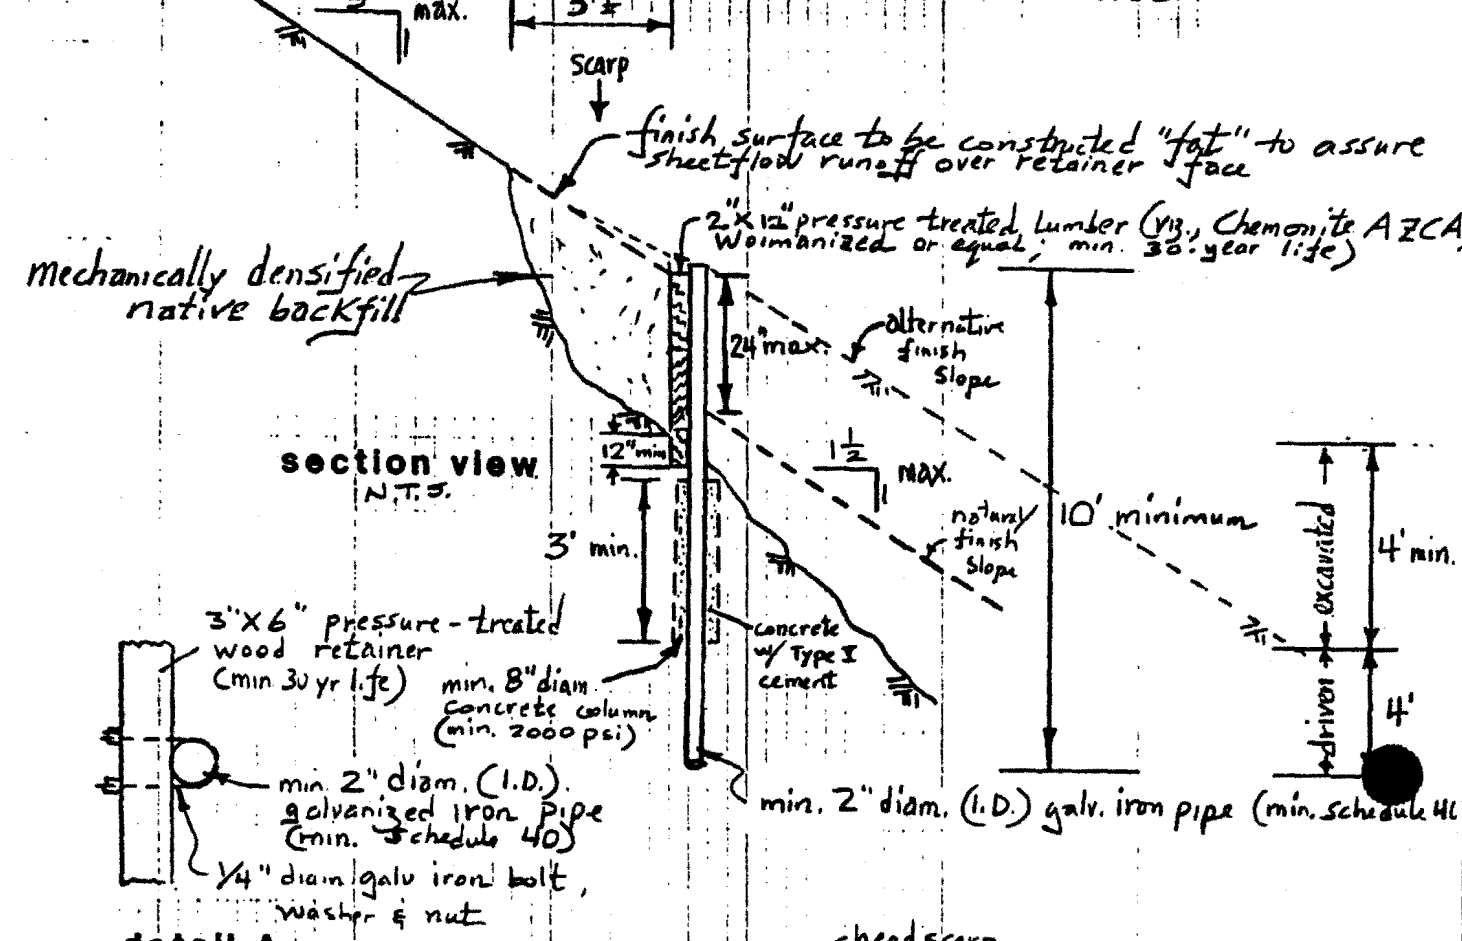 max.
Scarp
finish surface to be constructed "fat" to assure
sheetflow runoff over retainer face
2"X12" pressure treated lumber (viz., Chemonite AZCA,
Wolmanized or equal; min. 30-year life)
mechanically densified
native backfill
24" max.
alternative
finish
slope
12" min
section view
N.T.S.
1 1/2
1
max.
natural
finish
slope
10' minimum
excavated
4' min.
3' min.
3"X6" pressure-treated
wood retainer
(min 30 yr life)
min. 8" diam
concrete column
(min. 2000 psi)
concrete
w/ Type V
cement
driven
4'
min. 2" diam. (I.D.)
galvanized iron pipe
(min. schedule 40)
min. 2" diam. (I.D.) galv. iron pipe (min. schedule
1/4" diam galv iron bolt,
washer & nut